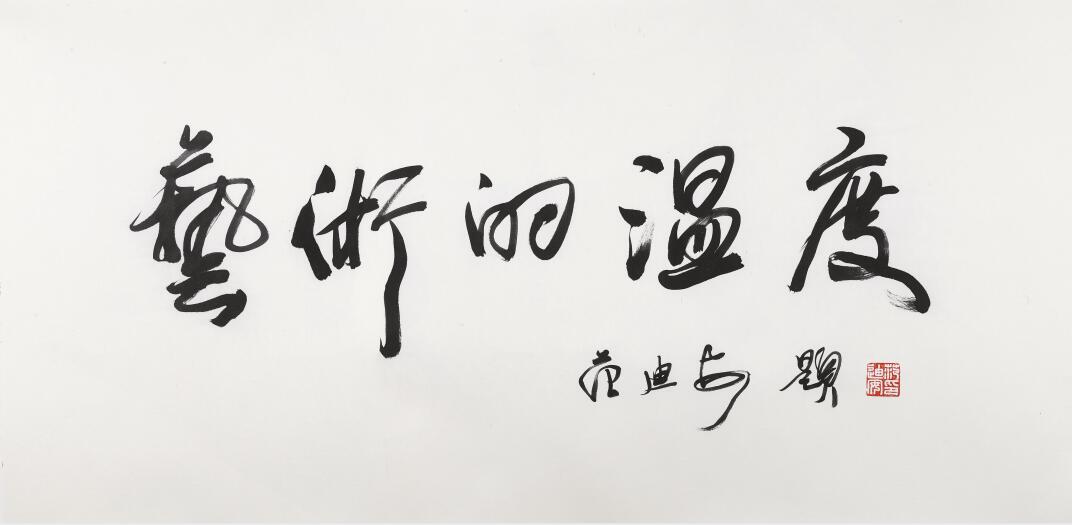 藝術的溫度
范迪安 題
范迪安印